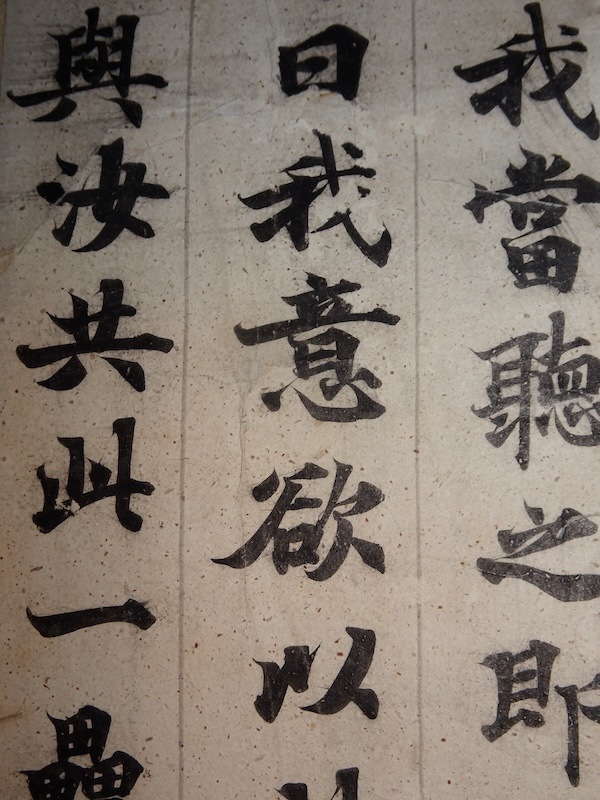 我當聽之即
曰我意欲以
與汝共此一疊